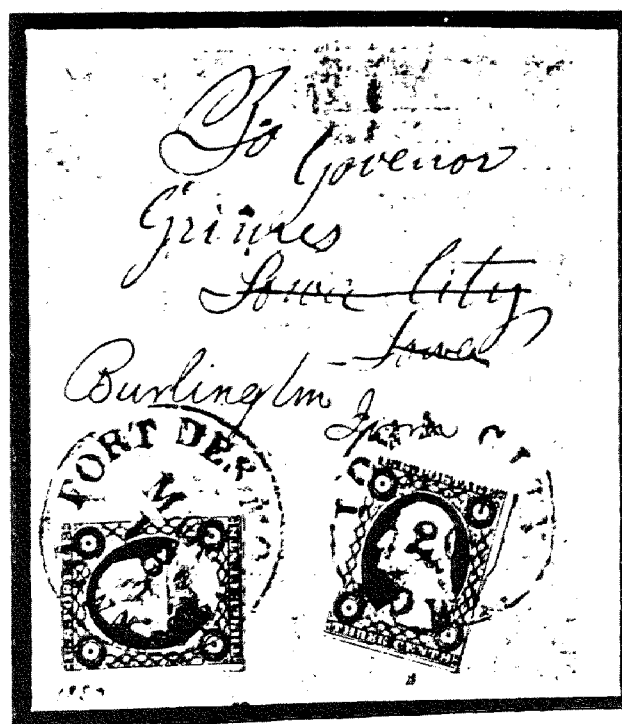 To Govenor
Grimes
Iowa City
Iowa
Burlington
Iowa
FORT DES MO
IOWA CITY
IOWA